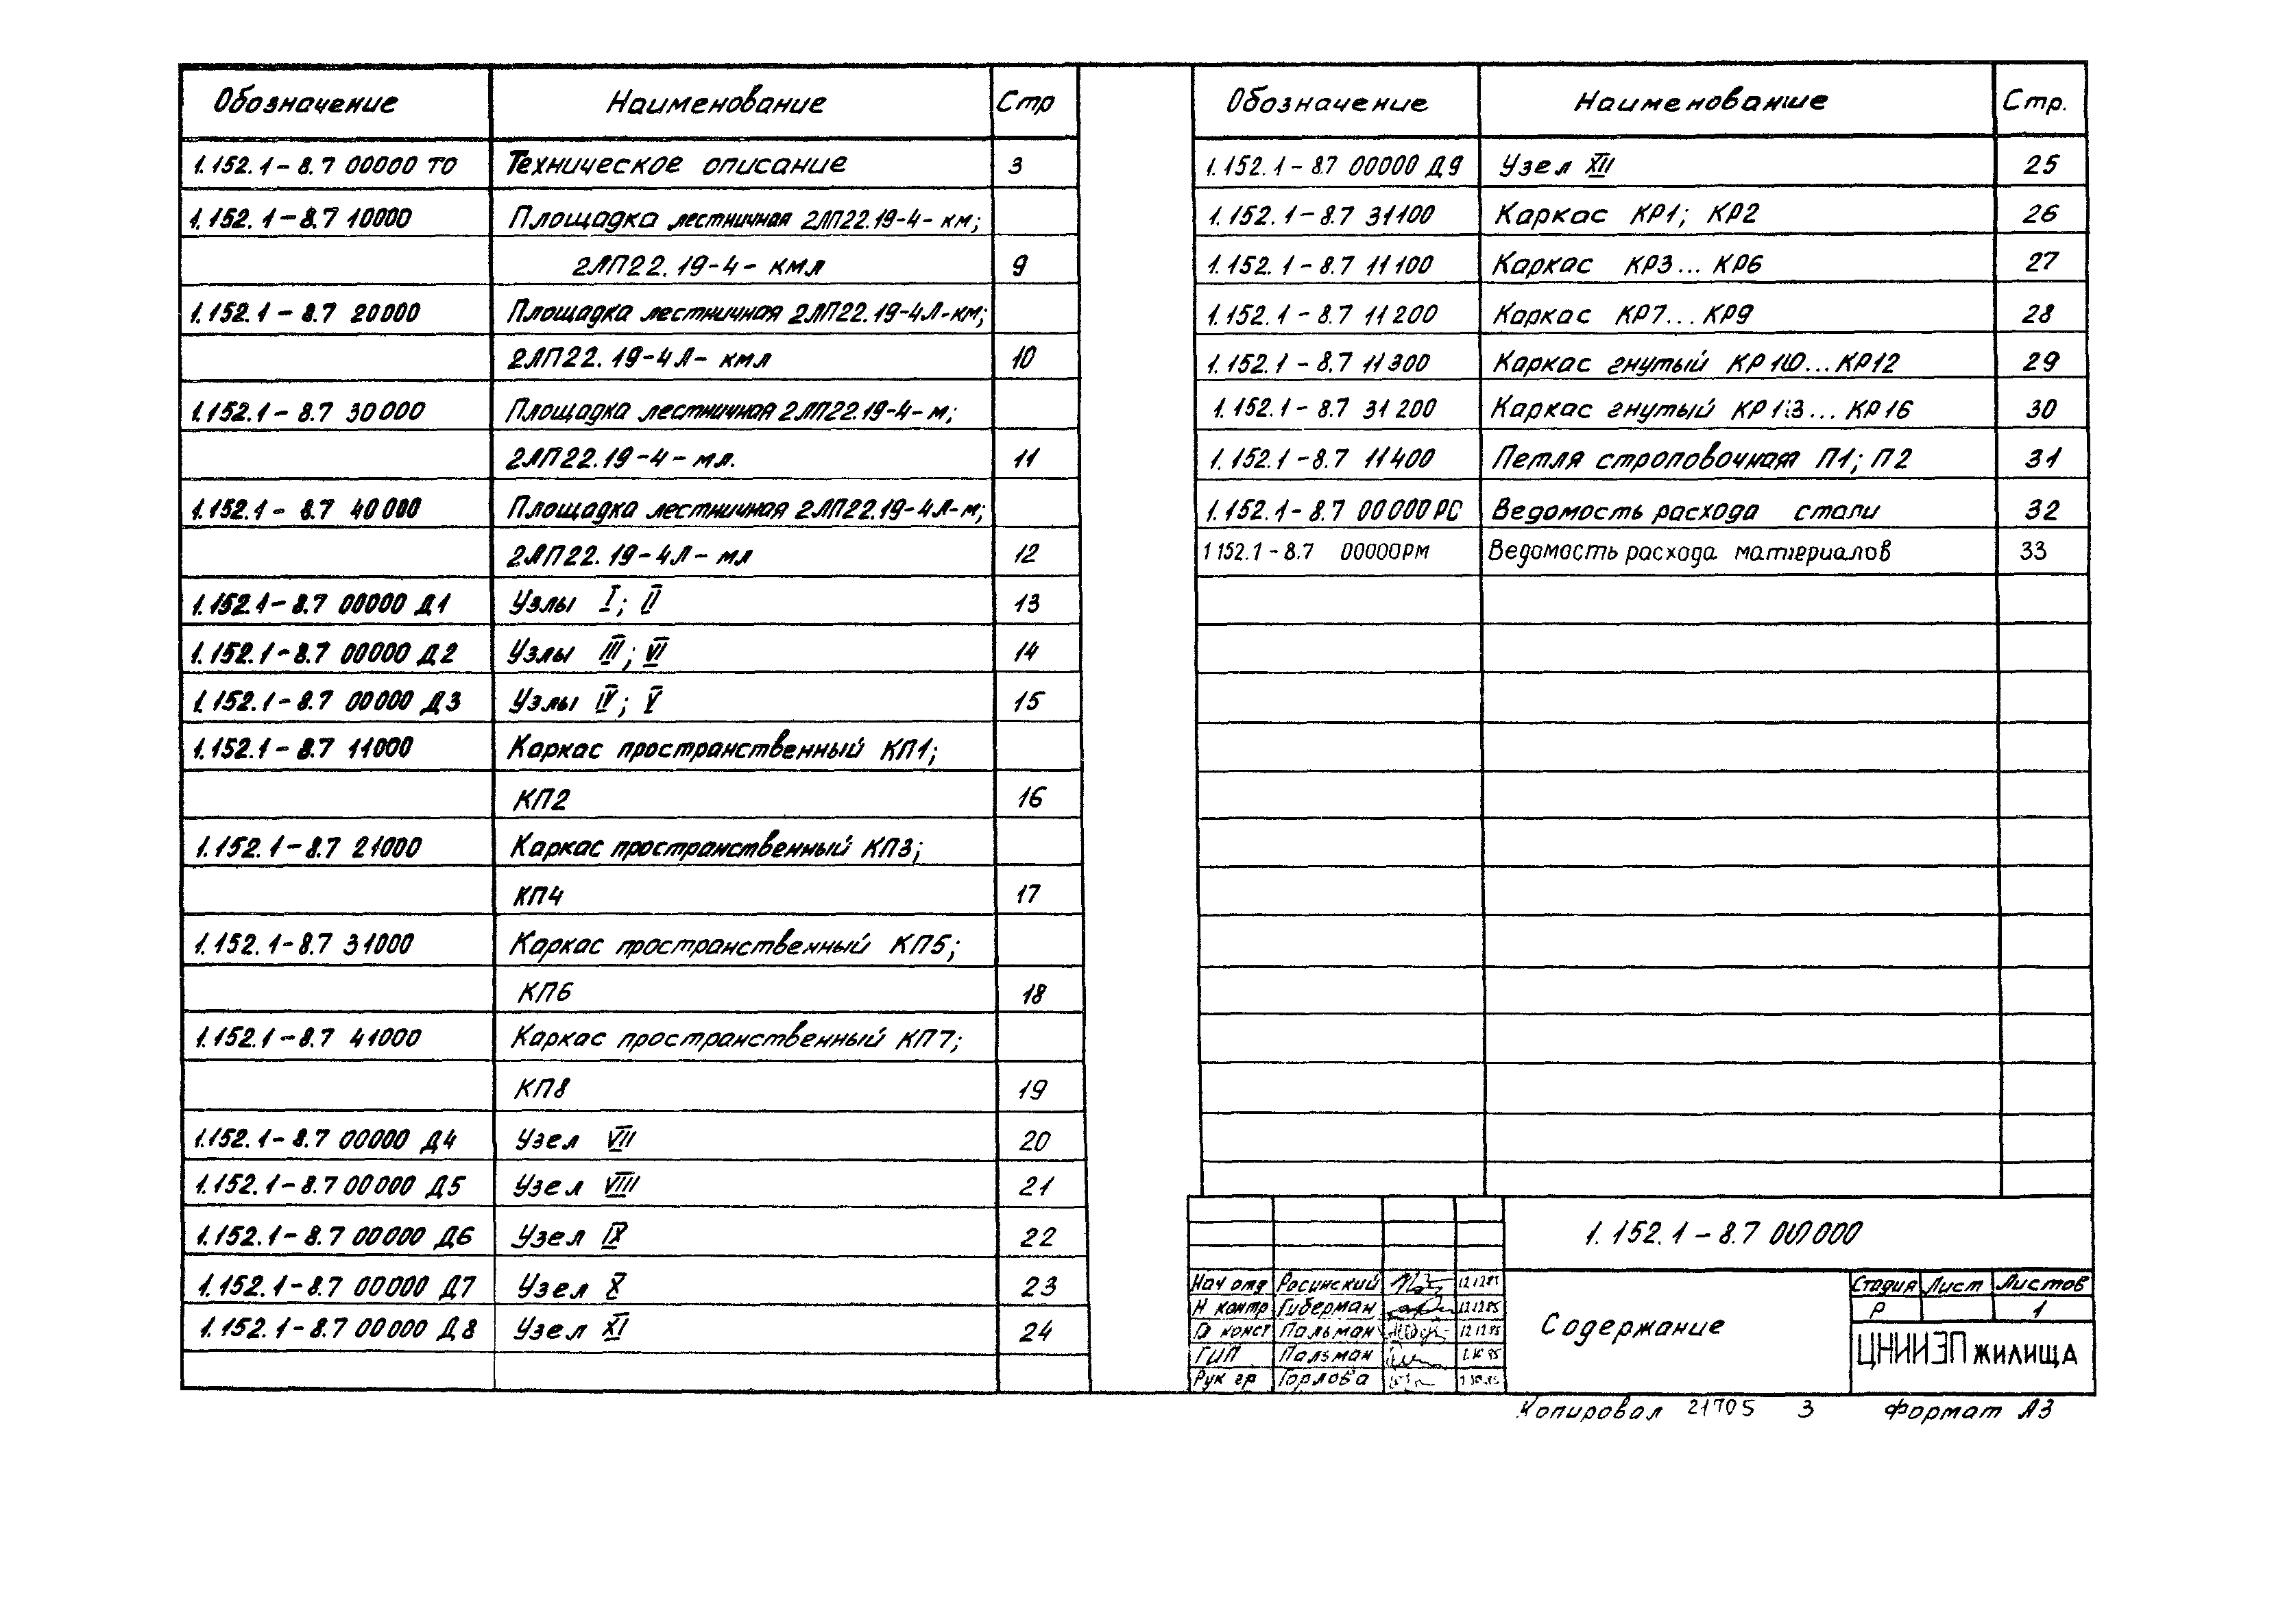 Обозначение Наименование Стр
1.152.1-8.7 00000 ТО Техническое описание 3
1.152.1-8.7 10000 Площадка лестничная 2ЛП22.19-4-км;
2ЛП22.19-4-кмл 9
1.152.1-8.7 20000 Площадка лестничная 2ЛП22.19-4Л-км;
2ЛП22.19-4Л-кмл 10
1.152.1-8.7 30000 Площадка лестничная 2ЛП22.19-4-м;
2ЛП22.19-4-мл. 11
1.152.1-8.7 40000 Площадка лестничная 2ЛП22.19-4Л-м;
2ЛП22.19-4Л-мл 12
1.152.1-8.7 00000 Д1 Узлы I; II 13
1.152.1-8.7 00000 Д2 Узлы III; VI 14
1.152.1-8.7 00000 Д3 Узлы IV; V 15
1.152.1-8.7 11000 Каркас пространственный КП1;
КП2 16
1.152.1-8.7 21000 Каркас пространственный КП3;
КП4 17
1.152.1-8.7 31000 Каркас пространственный КП5;
КП6 18
1.152.1-8.7 41000 Каркас пространственный КП7;
КП8 19
1.152.1-8.7 00000 Д4 Узел VII 20
1.152.1-8.7 00000 Д5 Узел VIII 21
1.152.1-8.7 00000 Д6 Узел IX 22
1.152.1-8.7 00000 Д7 Узел X 23
1.152.1-8.7 00000 Д8 Узел XI 24
Обозначение Наименование Стр.
1.152.1-8.7 00000 Д9 Узел XII 25
1.152.1-8.7 31100 Каркас КР1; КР2 26
1.152.1-8.7 11100 Каркас КР3...КР6 27
1.152.1-8.7 11200 Каркас КР7...КР9 28
1.152.1-8.7 11300 Каркас гнутый КР10...КР12 29
1.152.1-8.7 31200 Каркас гнутый КР13...КР16 30
1.152.1-8.7 11400 Петля строповочная П1; П2 31
1.152.1-8.7 00000РС Ведомость расхода стали 32
1 152.1-8.7 00000РМ Ведомость расхода материалов 33
1.152.1-8.7 00000
Нач отд Росинский 12.12.85
Н контр Гиберман 12.12.85
Пальман 12.12.85
ГИП Пальман
Рук гр Горлова
Содержание
Стадия Лист Листов
Р 1
ЦНИИЭП жилища
Копировал 21705 3 Формат А3